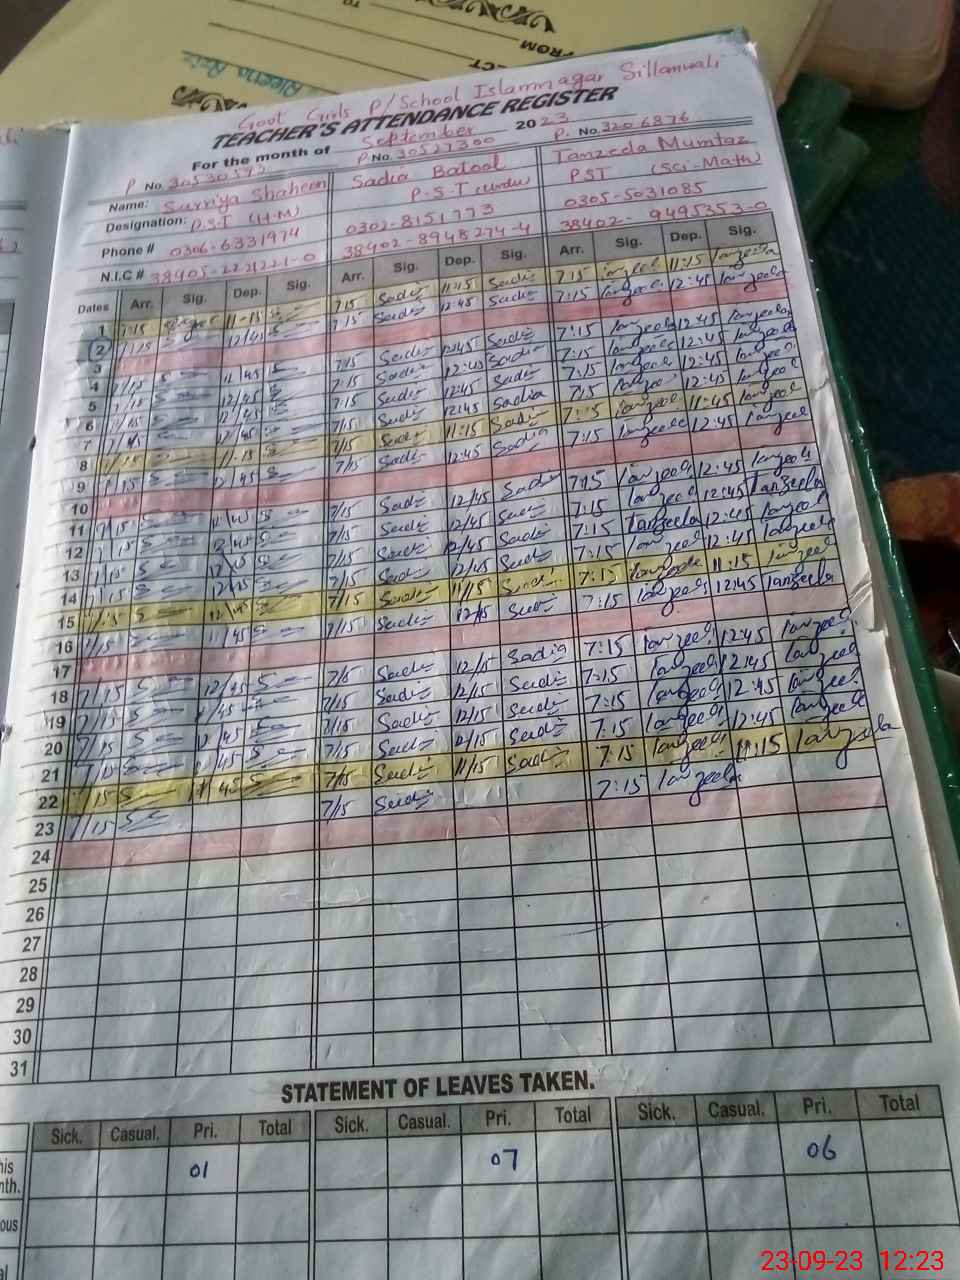 FROM
TO
Govt Girls P/School Islamnagar Sillanwali
TEACHER'S ATTENDANCE REGISTER
For the month of September 2023
P No. 30530593 P No. 30527300 P. No. 3206876
Name: Surriya Shaheen Sadia Batool Tanzeela Mumtaz
Designation: P.S.T (H.M) P.S.T (Urdu) PST (Sci-Math)
Phone # 0306-6331974 0302-8151773 0305-5031085
N.I.C # 38405-2221221-0 38402-8948274-4 38402-9495353-0
Dates Arr. Sig. Dep. Sig. Arr. Sig. Dep. Sig. Arr. Sig. Dep. Sig.
1 7:15 11-15 7:15 Sadia 11:15 Sadia 7:15 Tanzeela 11:15 Tanzeela
2 7/15 12/45 7:15 Sadia 12:45 Sadia 7:15 Tanzeela 12:45 Tanzeela
3
4 7/15 12/45 7/15 Sadia 12/45 Sadia 7:15 Tanzeela 12:45 Tanzeela
5 7/15 12/45 7:15 Sadia 12:45 Sadia 7:15 Tanzeela 12:45 Tanzeela
6 12/45 7:15 Sadia 12:45 Sadia 7:15 Tanzeela 12:45 Tanzeela
7 12/45 7/15 Sadia 12:45 Sadia 7:15 Tanzeela 12:45 Tanzeela
8 7/15 11:15 7/15 Sadia 11:15 Sadia 7:15 Tanzeela 11:45 Tanzeela
9 7/15 12/45 7/15 Sadia 12:45 Sadia 7:15 Tanzeela 12:45 Tanzeela
10
11 7/15 12/45 7/15 Sadia 12/45 Sadia 7:15 Tanzeela 12:45 Tanzeela
12 7/15 12/45 7/15 Sadia 12/45 Sadia 7:15 Tanzeela 12:45 Tanzeela
13 7/15 7/15 Sadia 12/45 Sadia 7:15 Tanzeela 12:45 Tanzeela
14 7/15 12/45 7/15 Sadia 12/45 Sadia 7:15 Tanzeela 12:45 Tanzeela
15 7/15 7/15 Sadia 11/15 Sadia 7:15 Tanzeela 11:15 Tanzeela
16 7/15 7/15 Sadia 12/45 Sadia 7:15 Tanzeela 12:45 Tanzeela
17
18 7/15 12/45 7/15 Sadia 12/15 Sadia 7:15 Tanzeela 12:45 Tanzeela
19 7/15 12/45 7/15 Sadia 12/15 Sadia 7:15 Tanzeela 12:45 Tanzeela
20 7/15 12/45 7/15 Sadia 12/15 Sadia 7:15 Tanzeela 12:45 Tanzeela
21 7/15 12/45 7/15 Sadia 12/15 Sadia 7:15 Tanzeela 12:45 Tanzeela
22 7/15 7/15 Sadia 11/15 Sadia 7:15 Tanzeela 11:15 Tanzeela
23 7/15 7/15 Sadia 7:15 Tanzeela
24
25
26
27
28
29
30
31
STATEMENT OF LEAVES TAKEN.
Sick. Casual. Pri. Total Sick. Casual. Pri. Total Sick. Casual. Pri. Total
01 07 06
23-09-23 12:23